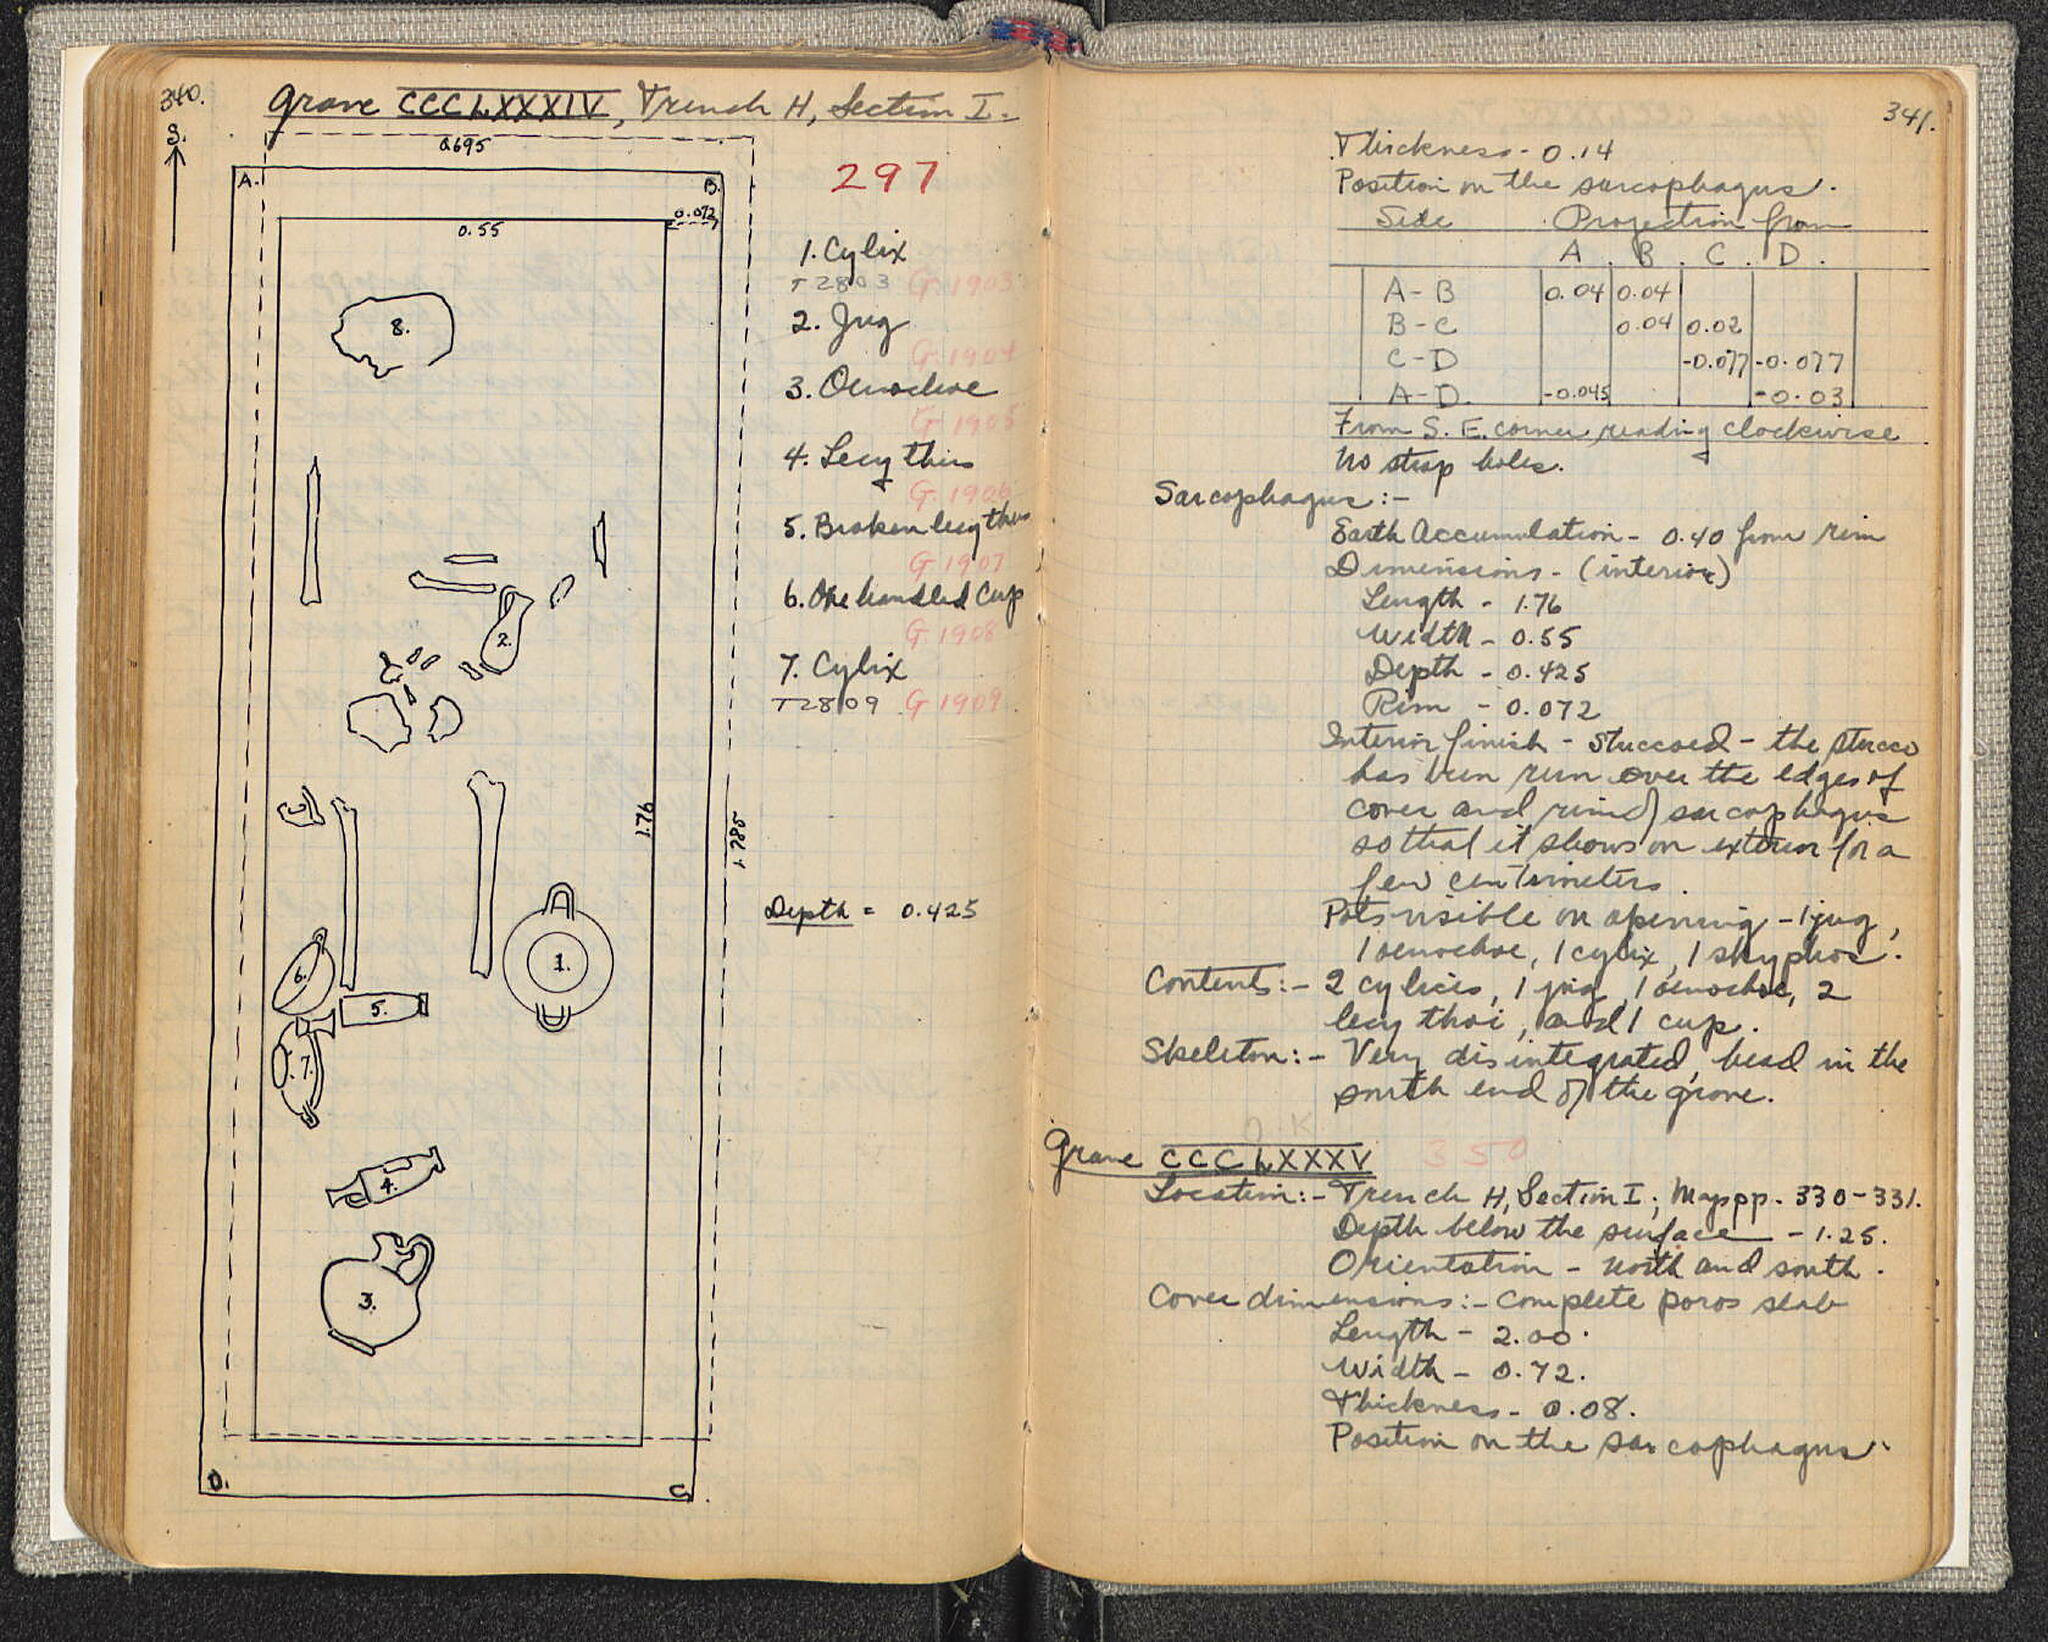 340.
Grave CCCLXXXIV, Trench H, Section I.
S.
0.695
A.
B.
0.072
0.55
297
1. Cylix
T2803 G 1903
2. Jug
G. 1904
3. Oenochoe
G 1905
4. Lecythus
G. 1906
5. Broken lecythus
G 1907
6. One handled Cup
G 1908
7. Cylix
T2809 G 1909
8.
2.
1.76
1.985
Depth = 0.425
1.
6.
5.
7.
4.
3.
D.
C.
341.
Thickness - 0.14
Position on the sarcophagus.
Side Projection from
A. B. C. D.
A-B 0.04 0.04
B-C 0.04 0.02
C-D -0.077 -0.077
A-D. -0.045 -0.03
From S. E. corner reading clockwise
No strap holes.
Sarcophagus:-
Earth Accumulation - 0.40 from rim
Dimensions - (interior)
Length - 1.76
Width - 0.55
Depth - 0.425
Rim - 0.072
Interior finish - Stuccoed - the stucco
has been run over the edges of
cover and rim of sarcophagus
so that it shows on exterior for a
few centimeters.
Pots visible on opening - 1 jug,
1 oenochoe, 1 cylix, 1 skyphos.
Contents:- 2 cylices, 1 jug, 1 oenochoe, 2
lecythoi, and 1 cup.
Skeleton:- Very disintegrated, head in the
south end of the grave.
O.K.
Grave CCCLXXXV 350
Location:- Trench H, Section I; Map pp. 330-331.
Depth below the surface - 1.25.
Orientation - North and south.
Cover dimensions:- Complete poros slab
Length - 2.00.
Width - 0.72.
Thickness - 0.08.
Position on the sarcophagus.